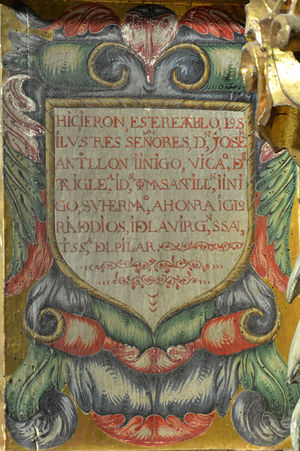 HICIERON, ESTE REABLO, LOS
ILVSTRES SEÑORES, Dn JOSE
ANTILLON IINIGO, VICA,
IGLE,A, I Dn SANTILLn, IINI
GO, SV HERMo, A HONRA I GLO
RA D DIOS, I D LA VIRGn, SSA,
SSa DL PILAR